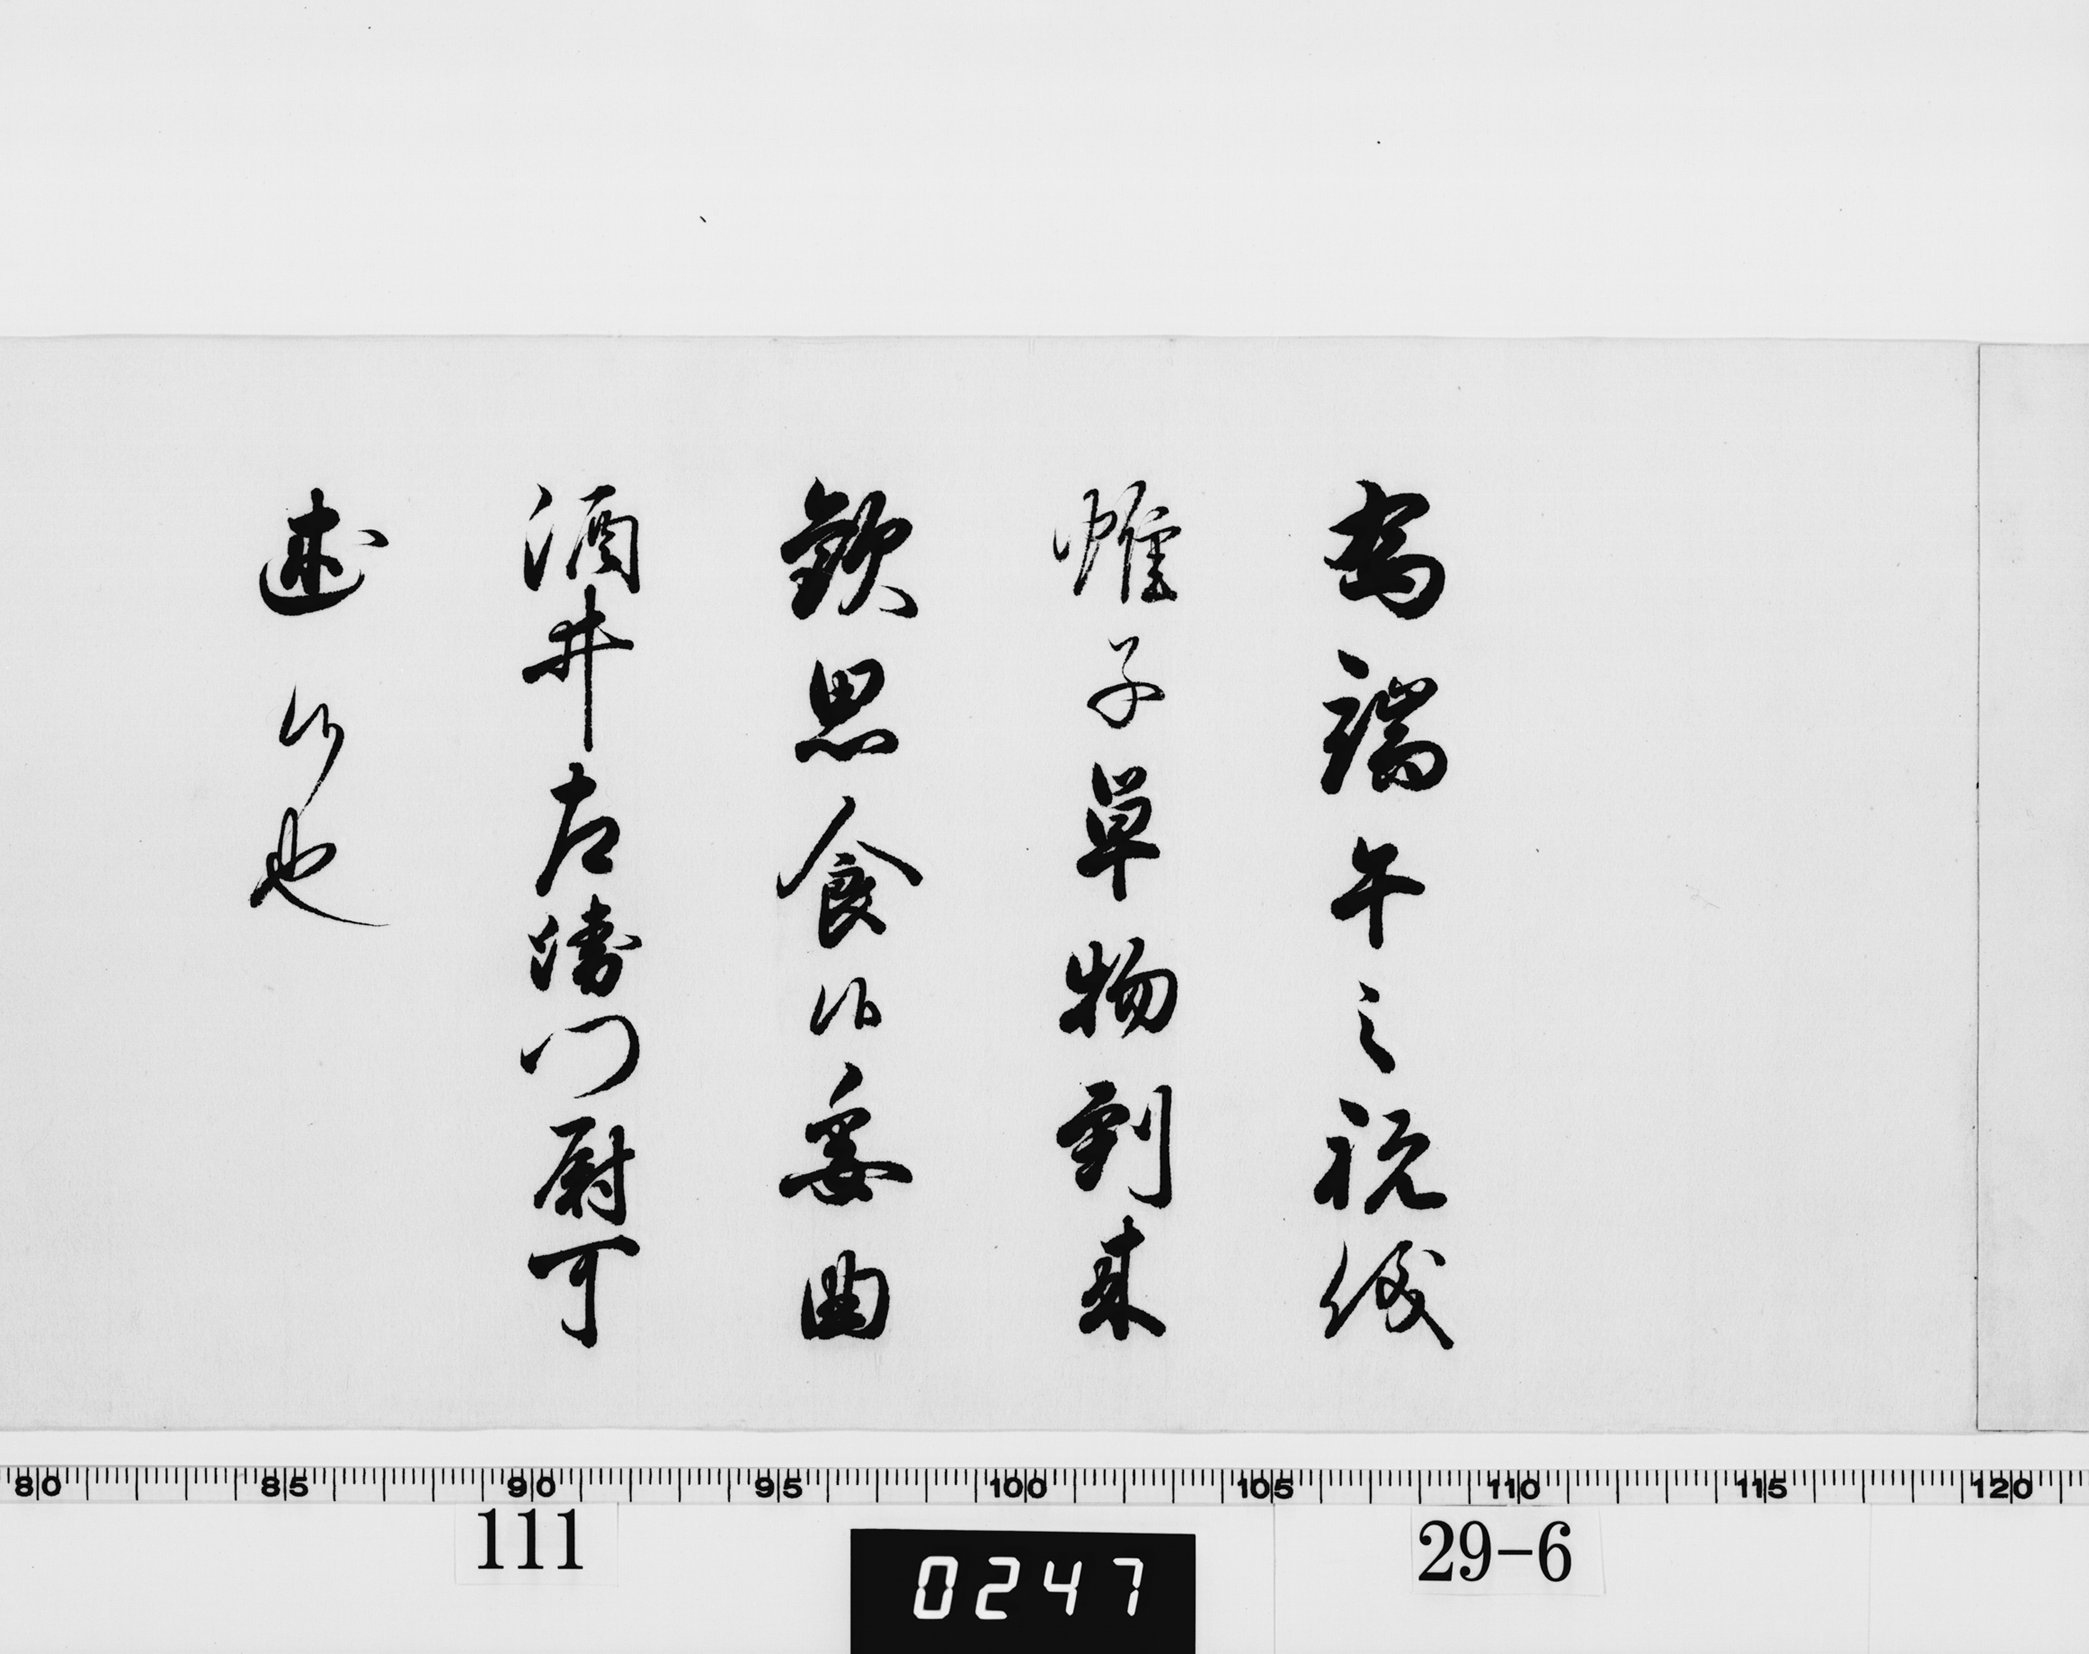 為端午之祝儀
帷子単物到来
歓思食候委曲
酒井左衛門尉可
述候也
80 85 90 95 100 105 110 115 120
111
0247
29-6